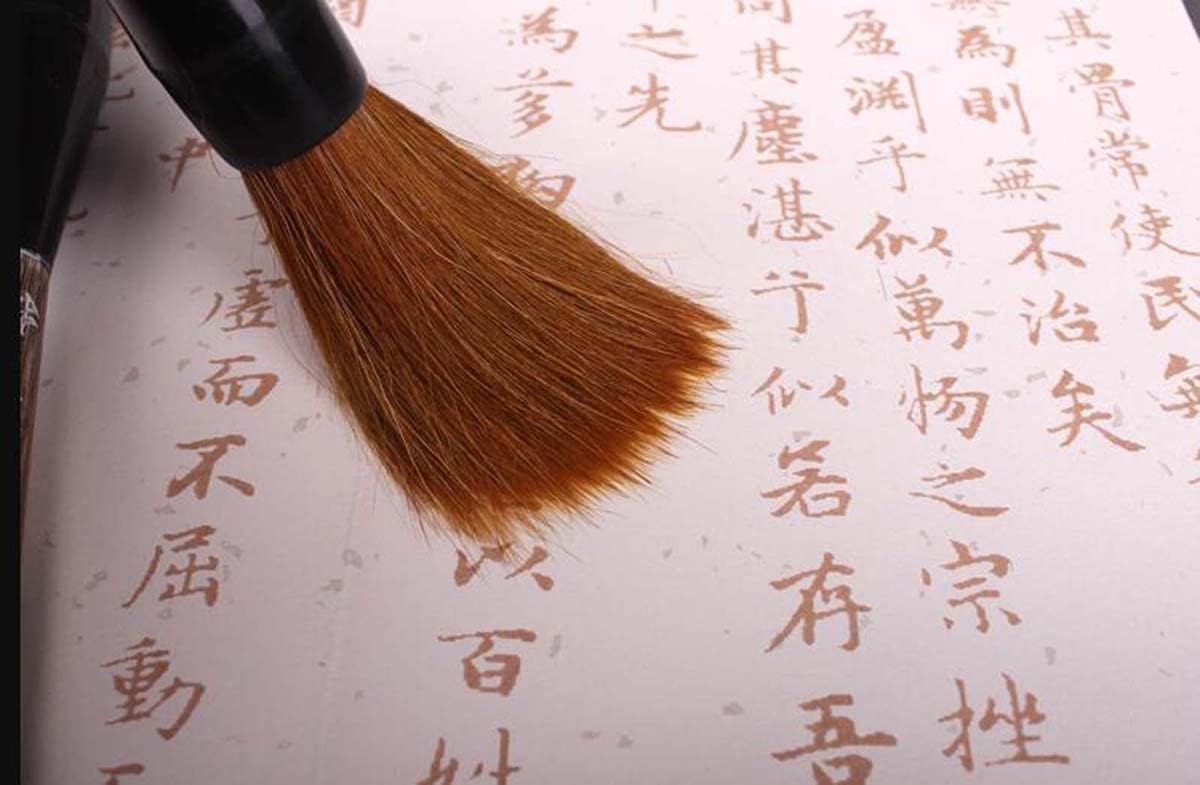 其骨常使民無
為則無不治矣
盈淵乎似萬物之宗挫
同其塵湛兮似若存吾
之先
為芻狗
以百姓
虛而不屈動
中